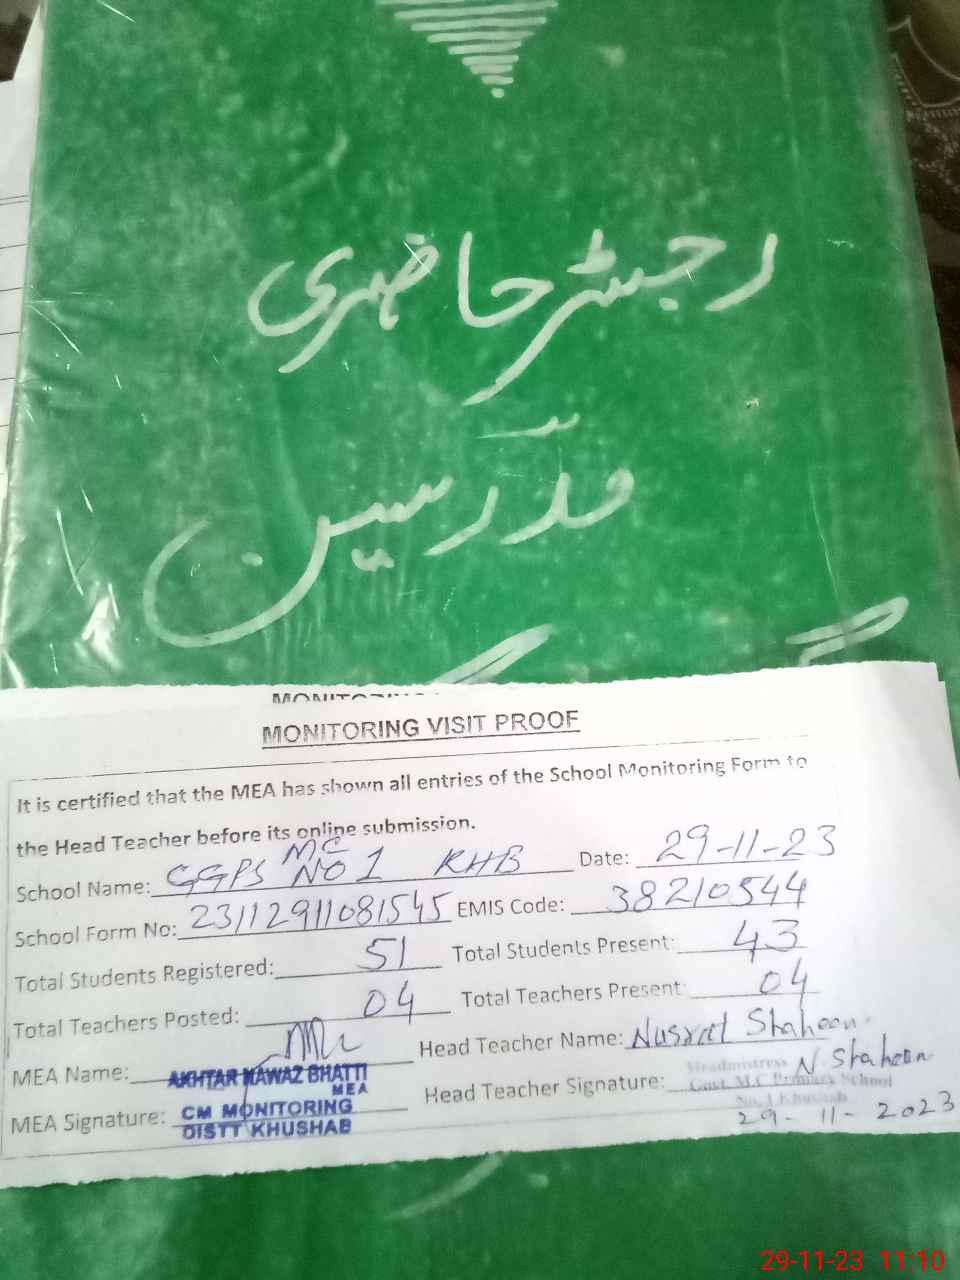 رجسٹر حاضری
مدرّسین
MONITORING VISIT PROOF
It is certified that the MEA has shown all entries of the School Monitoring Form to
the Head Teacher before its online submission.
School Name: GGPS MC NO 1 KHB Date: 29-11-23
School Form No: 23112911081545 EMIS Code: 38210544
Total Students Registered: 51 Total Students Present: 43
Total Teachers Posted: 04 Total Teachers Present: 04
MEA Name: AKHTAR NAWAZ BHATTI Head Teacher Name: Nusrat Shaheen
MEA
MEA Signature: CM MONITORING Head Teacher Signature: N. Shaheen
DISTT KHUSHAB
Headmistress
Govt. M.C Primary School
No. 1 Khushab
29-11-2023
29-11-23 11:10